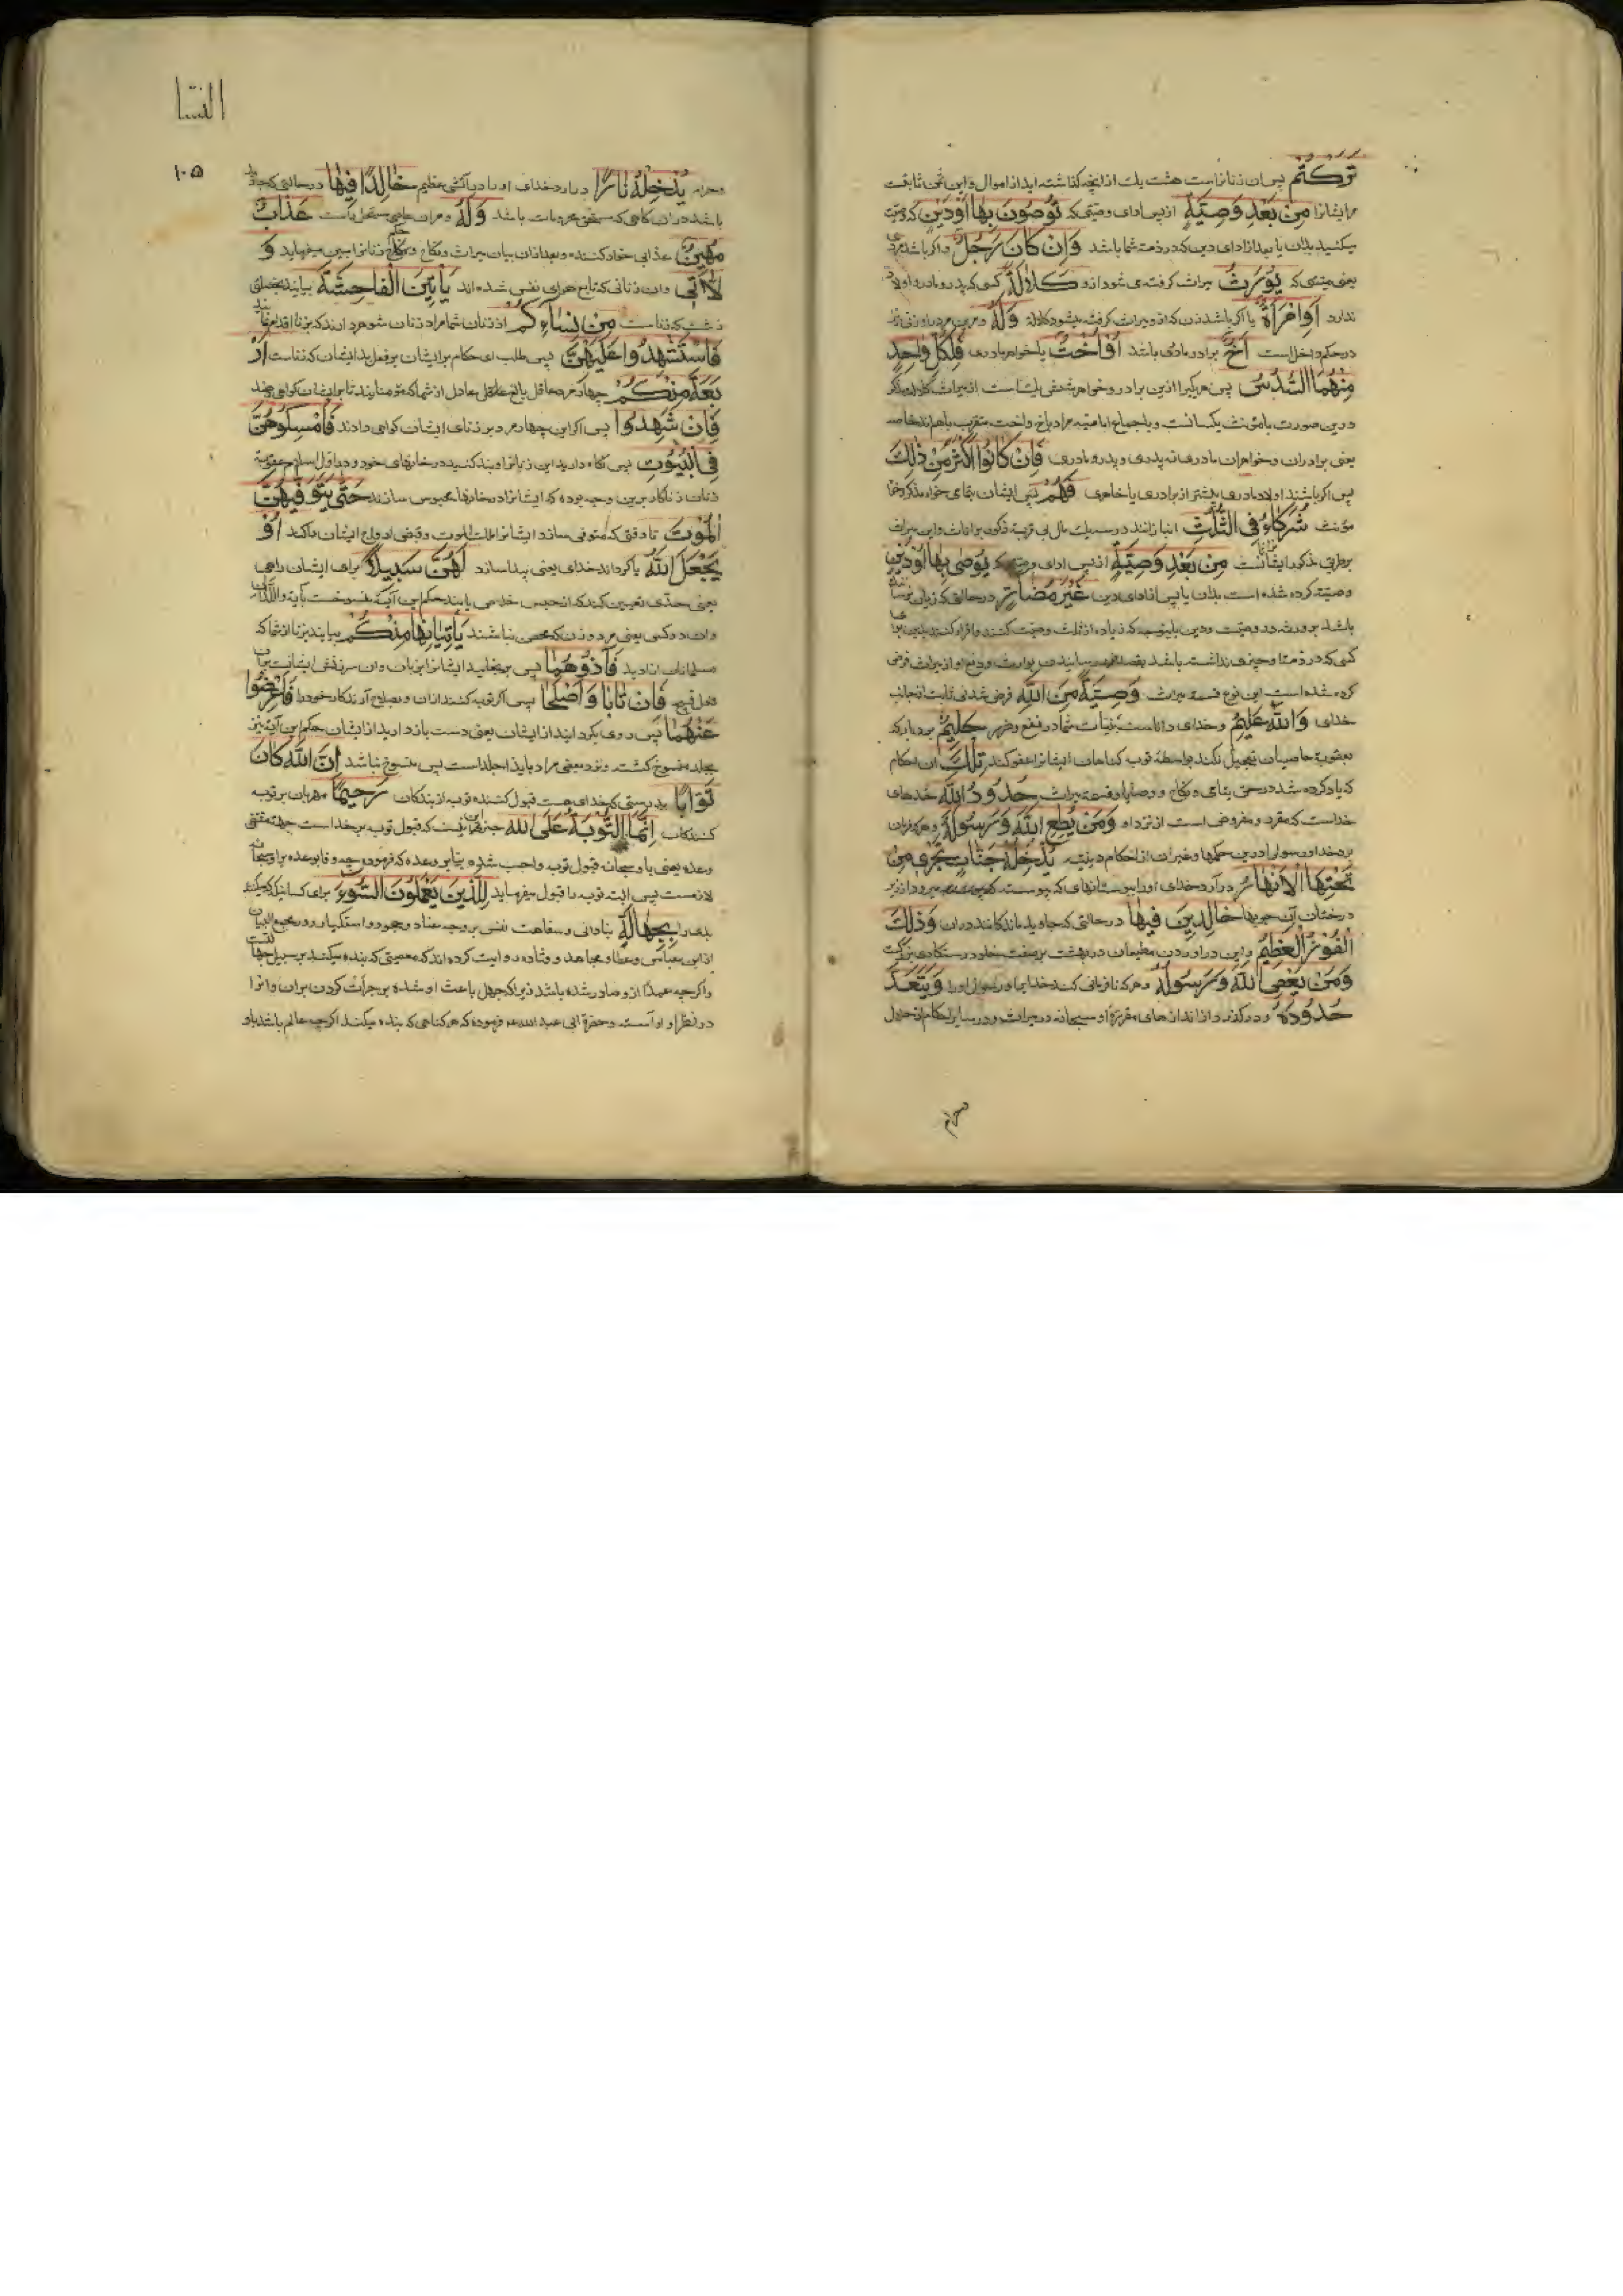 تَرَكْتُمْ پس زنانراست هشت یك از انچه گذاشته اید از اموال و این ثمن ثابتست
مر ایشانرا مِنْ بَعْدِ وَصِيَّةٍ از پس ادای وصیتی که تُوصُونَ بِهَا أَوْ دَيْنٍ که وصیت
میکنید بدان یا بعد از ادای دین که در ذمت شما باشد وَإِنْ كَانَ رَجُلٌ و اگر باشد مردی
یعنی میتی که يُورَثُ میراث گرفته می شود ازو كَلَالَةً کسی که پدر و مادر و اولاد
ندارد أَوِ امْرَأَةٌ یا اگر باشد زن که ازو میراث گرفته میشود کلاله وَلَهُ و مر این مرد راو زن نیز
در حکم داخل است أَخٌ برادر مادری باشد أَوْ أُخْتٌ یا خواهر مادری فَلِكُلِّ وَاحِدٍ
مِنْهُمَا السُّدُسُ پس هر یکیرا ازین برادر و خواهر شش یك است از میراث
درین صورت با مؤنث یکسانست و باجماع امامیه مراد باخ و اخت متقرب بام اند خاصه
یعنی برادران و خواهران مادری نه پدری و پدر و مادری فَإِنْ كَانُوا أَكْثَرَ مِنْ ذَلِكَ
پس اگر باشند اولاد مادری بیشتر از برادری یا خاهری فَهُمْ پس ایشان بتمامی خواه مذکر خواه
مؤنث شُرَكَاءُ فِي الثُّلُثِ انبازانند در سه یك مال بی مزیت ذکور بر اناث و این میراث
بطریق مذکور ایشانراست مِنْ بَعْدِ وَصِيَّةٍ از پس ادای وصیتی که يُوصَى بِهَا أَوْ دَيْنٍ
وصیت کرده شده است بدان یا پس از ادای دین غَيْرَ مُضَارٍّ در حالتی که زیان نرساننده
باشد بر ورثه در وصیت و دین باینوجه که زیاده از ثلث وصیت کنند و اقرار کنند بدین برای
کسی که در ذمتا و چیزی نداشته باشد بقصد ضرر رسانیدن بوارث و دفع او از میراث فرض
کرده شده است این نوع قسمت میراث وَصِيَّةً مِنَ اللَّهِ فرض شدنی ثابت از جانب
خدای وَاللَّهُ عَلِيمٌ و خدای داناست بنیات شما در نفع و ضرر حَلِيمٌ بردبار که
بعقوبة عاصیان تعجیل نکند بواسطۀ توبه کناهان ایشانرا عفو کند تِلْكَ این احکام
که یاد کرده شد در حق یتامی و نکاح و وصایا و قسمة میراث حُدُودُ اللَّهِ حدهای
خداست که مقرر و مفروض است از نزد او وَمَنْ يُطِعِ اللَّهَ وَرَسُولَهُ و هر که فرمان
برد خدا و رسول او درین حکمها و غیر آن از احکام دینیه يُدْخِلْهُ جَنَّاتٍ تَجْرِي مِنْ
تَحْتِهَا الْأَنْهَارُ در آرد خدای اورا ببوستانهای که پیوسته میرود از زیر
درختان آن جویها خَالِدِينَ فِيهَا در حالتی که جاوید مانندکانند دران وَذَلِكَ
الْفَوْزُ الْعَظِيمُ و این در اوردن مطیعان در بهشت بر صفت خلود رستگاری بزرگست
وَمَنْ يَعْصِ اللَّهَ وَرَسُولَهُ و هر که نافرمانی کند خدایرا و رسول اورا وَيَتَعَدَّ
حُدُودَهُ و در گذرد از اندازهای مقررۀ او سبحانه در میراث و در سایر احکام از حلال
النسا
۱۰۵
و حرام يُدْخِلْهُ نَارًا در ارد خدای اورا در آتشی عظیم خَالِدًا فِيهَا در حالتی که جاوید
باشد دران گاهی که مستحق باشد وَلَهُ و مران عاصی مستحل راست عَذَابٌ
مُهِينٌ عذابی خوار کننده و بعد ازان بیان میراث و نکاح زنانرا مبین میفرماید وَ
اللَّاتِي وان زنانی که تابع هوای نفس شده اند يَأْتِينَ الْفَاحِشَةَ بیایند بخصلتی
زشت که زناست مِنْ نِسَائِكُمْ از زنان شما مراد زنان شوهر دارند که بزنا اقدام نمایند
فَاسْتَشْهِدُوا عَلَيْهِنَّ پس طلب ای حکام بر ایشان بر فعل بد ایشان که زناست أَرْ
بَعَةً مِنْكُمْ چهار مرد عاقل بالغ عادل از شما که مؤمنانید تا بر ایشان کواهی دهند
فَإِنْ شَهِدُوا پس اگر این چهار مرد بر زنای ایشان کواهی دادند فَأَمْسِكُوهُنَّ
فِي الْبُيُوتِ پس نگاه دارید این زنانرا و بند کنید در خانهای خود و در اول اسلام عقوبة
زنان زناکار برین وجه بوده که ایشانرا در خانها محبوس سازند حَتَّى يَتَوَفَّيهُنَّ
الْمَوْتُ تا وقتی که متوفی سازد ایشانرا ملك الموت و قبض ارواح ایشان کند أَوْ
يَجْعَلَ اللَّهُ یا گرداند خدای یعنی پیدا سازد لَهُنَّ سَبِيلًا برای ایشان راهی
یعنی حدی تعیین کند که از حبس خلاصی یابند حکم این آیت منسوخست بآیه وَاللَّذَانِ
وان دو کس یعنی مرد و زن که محصن نباشند يَأْتِيَانِهَا مِنْكُمْ بیایند بزنا از شما که
مسلمانان ازادید فَآذُوهُمَا پس برنجانید ایشانرا بزبان وان سرزنش ایشانست بران
فعل قبیح فَإِنْ تَابَا وَأَصْلَحَا پس اگر توبه کنند ازان و بصلاح آرند کار خود را فَأَعْرِضُوا
عَنْهُمَا پس روی بگردانید از ایشان یعنی دست باز دارید از ایشان حکم این آیه نیز
بجلد منسوخ کشته و نزد بعضی مراد بایذا جلد است پس منسوخ نباشد إِنَّ اللَّهَ كَانَ
تَوَّابًا بدرستی که خدای هست قبول کننده توبه از بندکان رَحِيمًا مهربان بر توبه
کنندکان إِنَّمَا التَّوْبَةُ عَلَى اللَّهِ جز این نیست که قبول توبه بر خداست بمقتضی
وعده یعنی باو سبحانه قبول توبه واجب شده بنابر وعده که فرموده چه وفا بوعده بر او سبحانه
لازمست پس البته توبه را قبول میفرماید لِلَّذِينَ يَعْمَلُونَ السُّوءَ برای کسانیکه میکنند
بدی را بِجَهَالَةٍ بنادانی و سفاهت نفس بر وجه عناد و جحود و استکبار و در مجمع البیان
از ابن عباس و عطا و مجاهد و قتاده روایت کرده اند که معصیتی که بنده میکند بر سبیل جهالتست
و اگرچه عمدا ازو صادر شده باشد زیرا که جهل باعث او شده بر جرأت کردن بران وانرا
در نظر او آراسته و حضرة ابی عبد الله ع فرموده که هر کناهی که بنده میکند اگرچه عالم باشد باو